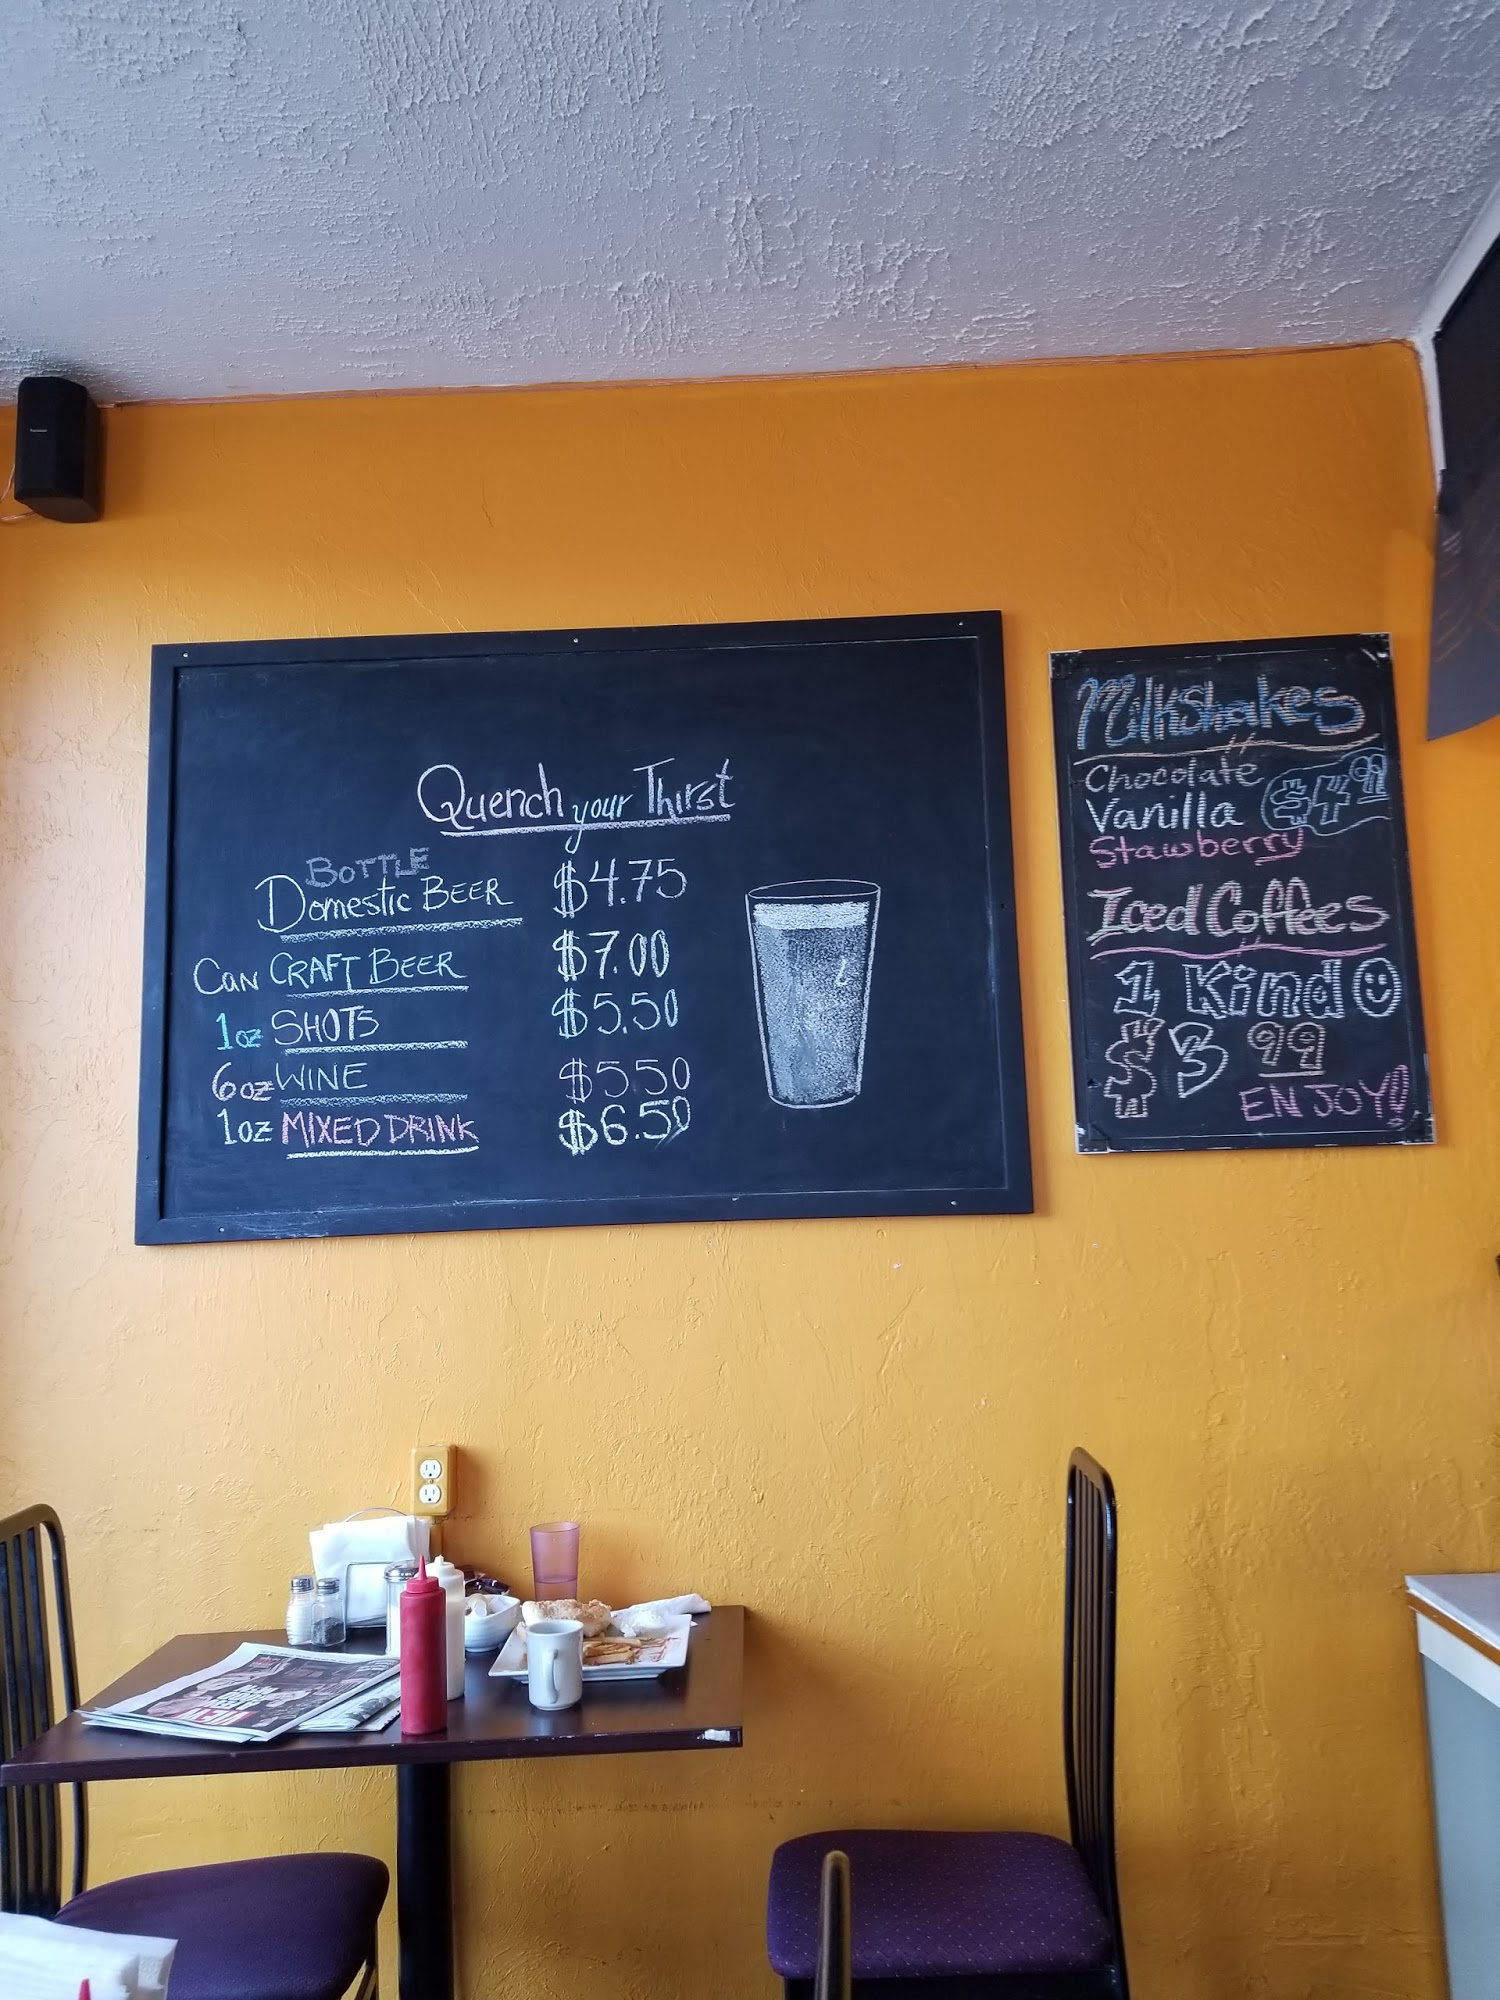 Quench your Thirst
BOTTLE
Domestic BEER $4.75
Can CRAFT BEER $7.00
1oz SHOTS $5.50
6oz WINE $5.50
1oz MIXED DRINK $6.50
Milkshakes
Chocolate
Vanilla $4.99
Stawberry
Iced Coffees
1 Kind
$3.99
ENJOY!!